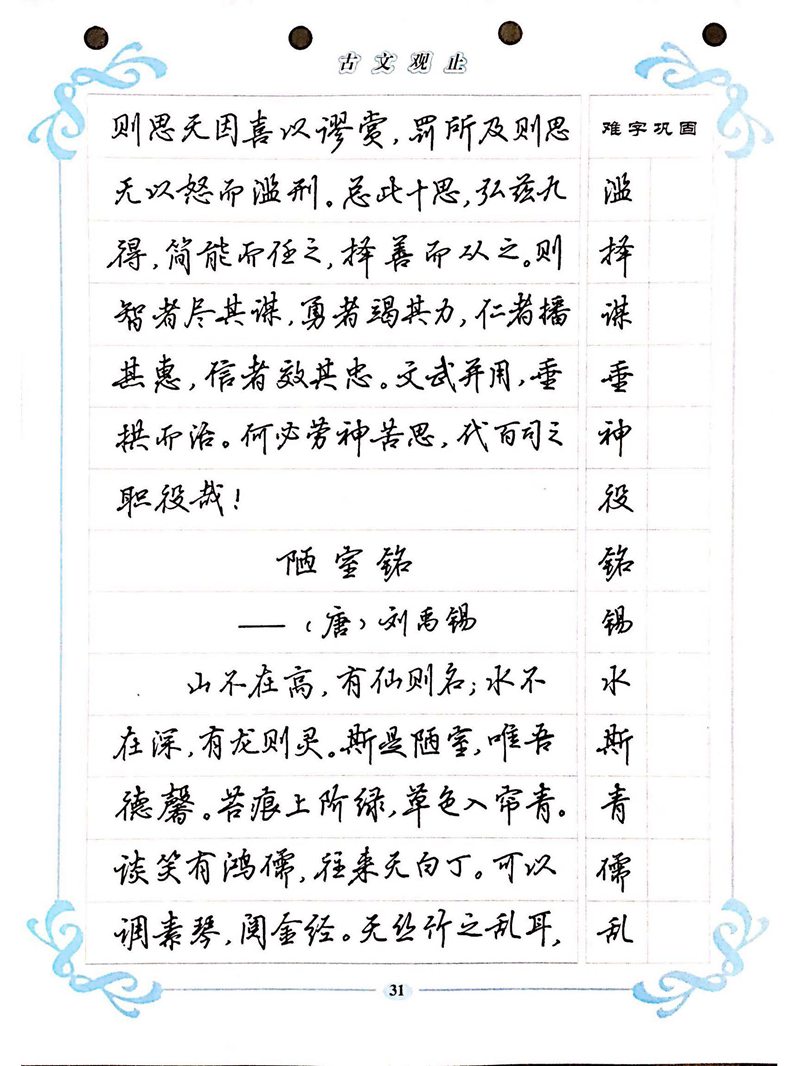 古文观止
则思无因喜以谬赏，罚所及则思
难字巩固
无以怒而滥刑。总此十思，弘兹九
滥
得，简能而任之，择善而从之。则
择
智者尽其谋，勇者竭其力，仁者播
谋
其惠，信者效其忠。文武并用，垂
垂
拱而治。何必劳神苦思，代百司之
神
职役哉！
役
陋室铭
铭
——（唐）刘禹锡
锡
山不在高，有仙则名；水不
水
在深，有龙则灵。斯是陋室，唯吾
斯
德馨。苔痕上阶绿，草色入帘青。
青
谈笑有鸿儒，往来无白丁。可以
儒
调素琴，阅金经。无丝竹之乱耳，
乱
31